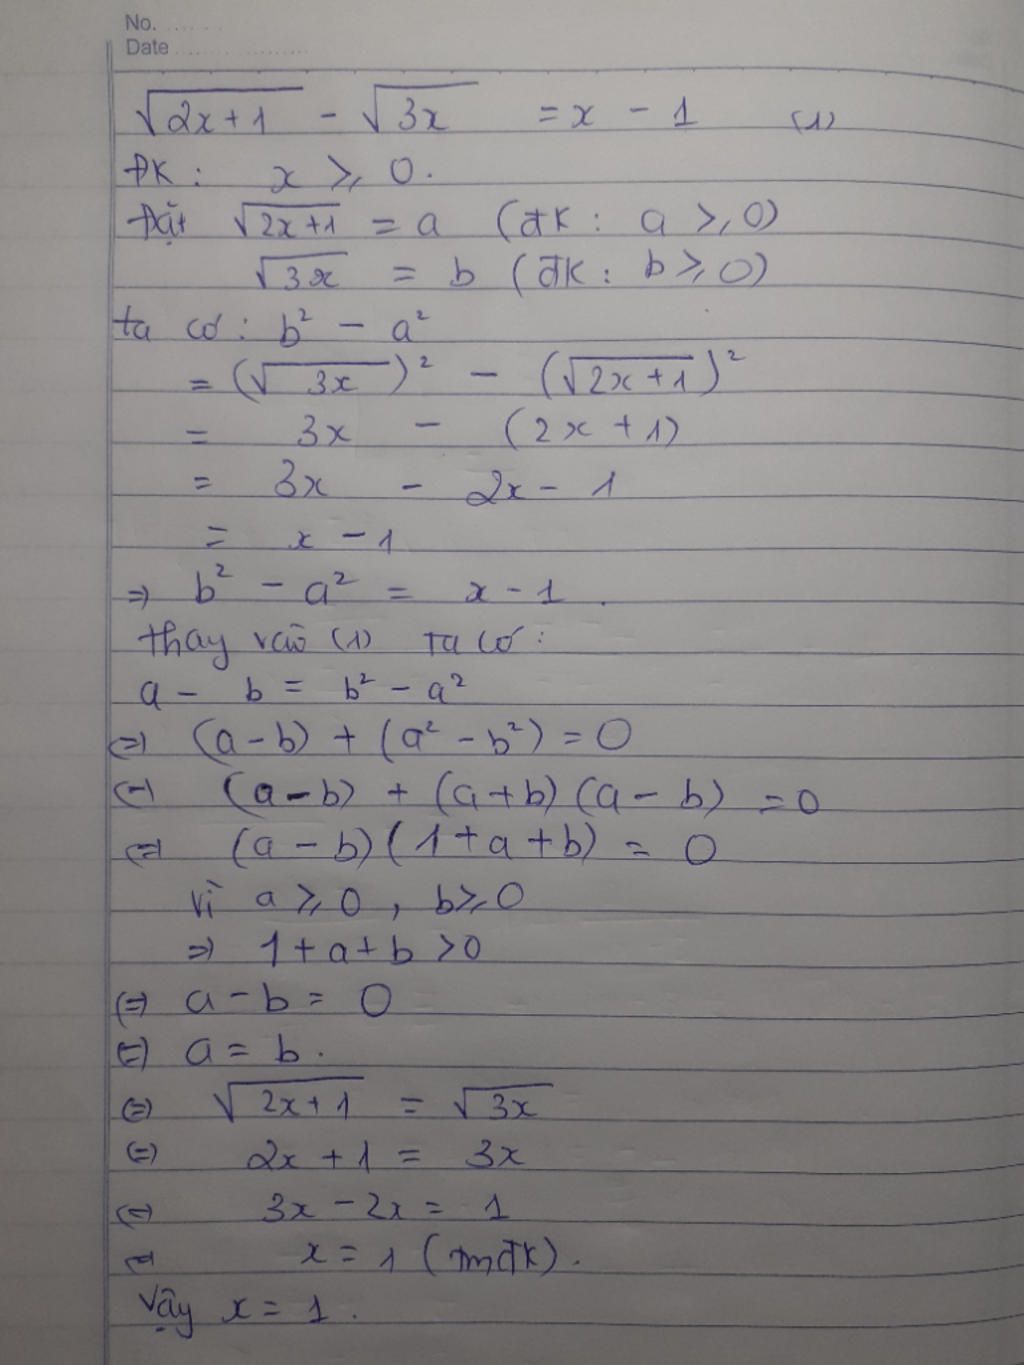 No. ........
Date ....................
√(2x+1) - √(3x) = x - 1 (1)
ĐK: x ⩾ 0.
Đặt √(2x+1) = a (đK: a ⩾ 0)
√(3x) = b (đK: b ⩾ 0)
ta có: b² - a²
= (√(3x))² - (√(2x+1))²
= 3x - (2x + 1)
= 3x - 2x - 1
= x - 1
⇒ b² - a² = x - 1.
thay vào (1) ta có:
a - b = b² - a²
⇔ (a - b) + (a² - b²) = 0
⇔ (a - b) + (a + b)(a - b) = 0
⇔ (a - b)(1 + a + b) = 0
vì a ⩾ 0, b ⩾ 0
⇒ 1 + a + b > 0
⇔ a - b = 0
⇔ a = b.
⇔ √(2x+1) = √(3x)
⇔ 2x + 1 = 3x
⇔ 3x - 2x = 1
⇔ x = 1 (tmđK).
Vậy x = 1.